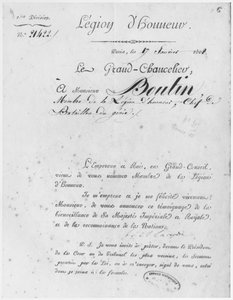 Division.
N.° 21422
Légion d'Honneur.
Paris, le 17
Le Grand-Chancelier,
A Monsieur Boulin
Membre de la Légion d'honneur, Chef de
Bataillon du génie
L'Empereur et Roi, en Grand-Conseil,
vient de vous nommer Membre de la Légion
d'Honneur.
Je m'empresse et je me félicite vivement,
Monsieur, de vous annoncer ce témoignage de la
bienveillance de Sa Majesté Impériale et Royale
et de la reconnaissance de la Nation.
P. S. Je vous invite à prêter, devant le Président
de la Cour ou du Tribunal le plus voisin, le serment
prescrit par la Loi, et à m'envoyer, signé de vous,
dont je joins ici la formule.